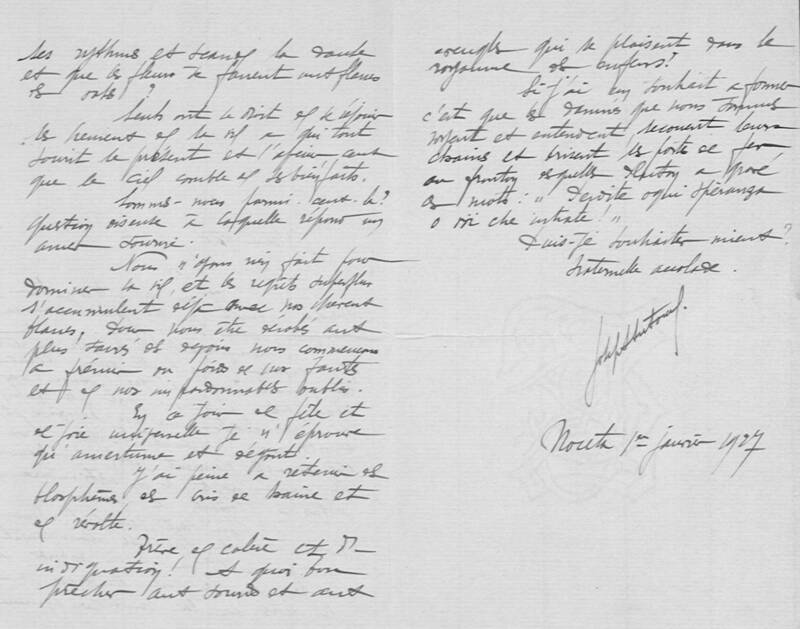 les rythmes et scande la danse
et que les fleurs se fanent aux flancs
des vases ?
Seuls ont le droit de se réjouir
les heureux de la vie à qui tout
sourit le présent et l'avenir ceux
que le ciel comble de ses bienfaits.
Sommes-nous parmi ceux-là ?
Question oiseuse à laquelle répond un
amer sourire.
Nous n'avons rien fait pour
dominer la vie, et les regrets superflus
s'accumulent déjà avec nos cheveux
blancs. Pour nous être dérobés aux
plus sacrés des devoirs nous commençons
à frémir au poids de nos fautes
et de nos impardonnables oublis.
En ce jour de fête et
de joie universelle je n'éprouve
qu'amertume et dégoût.
J'ai peine à retenir des
blasphèmes des cris de haine et
de révolte.
Frère de colère et d'in-
indignation ! A quoi bon
prêcher aux sourds et aux
aveugles qui se plaisent dans le
royaume des enfers ?
Si j'ai un souhait à former
c'est que les damnés que nous sommes
voyant et entendant, secouent leurs
chaînes et brisent les portes de fer
au fronton desquelles a gravé
ces mots : "
o voi che "
Puis-je souhaiter mieux ?
Fraternelle accolade.
1er janvier 1927